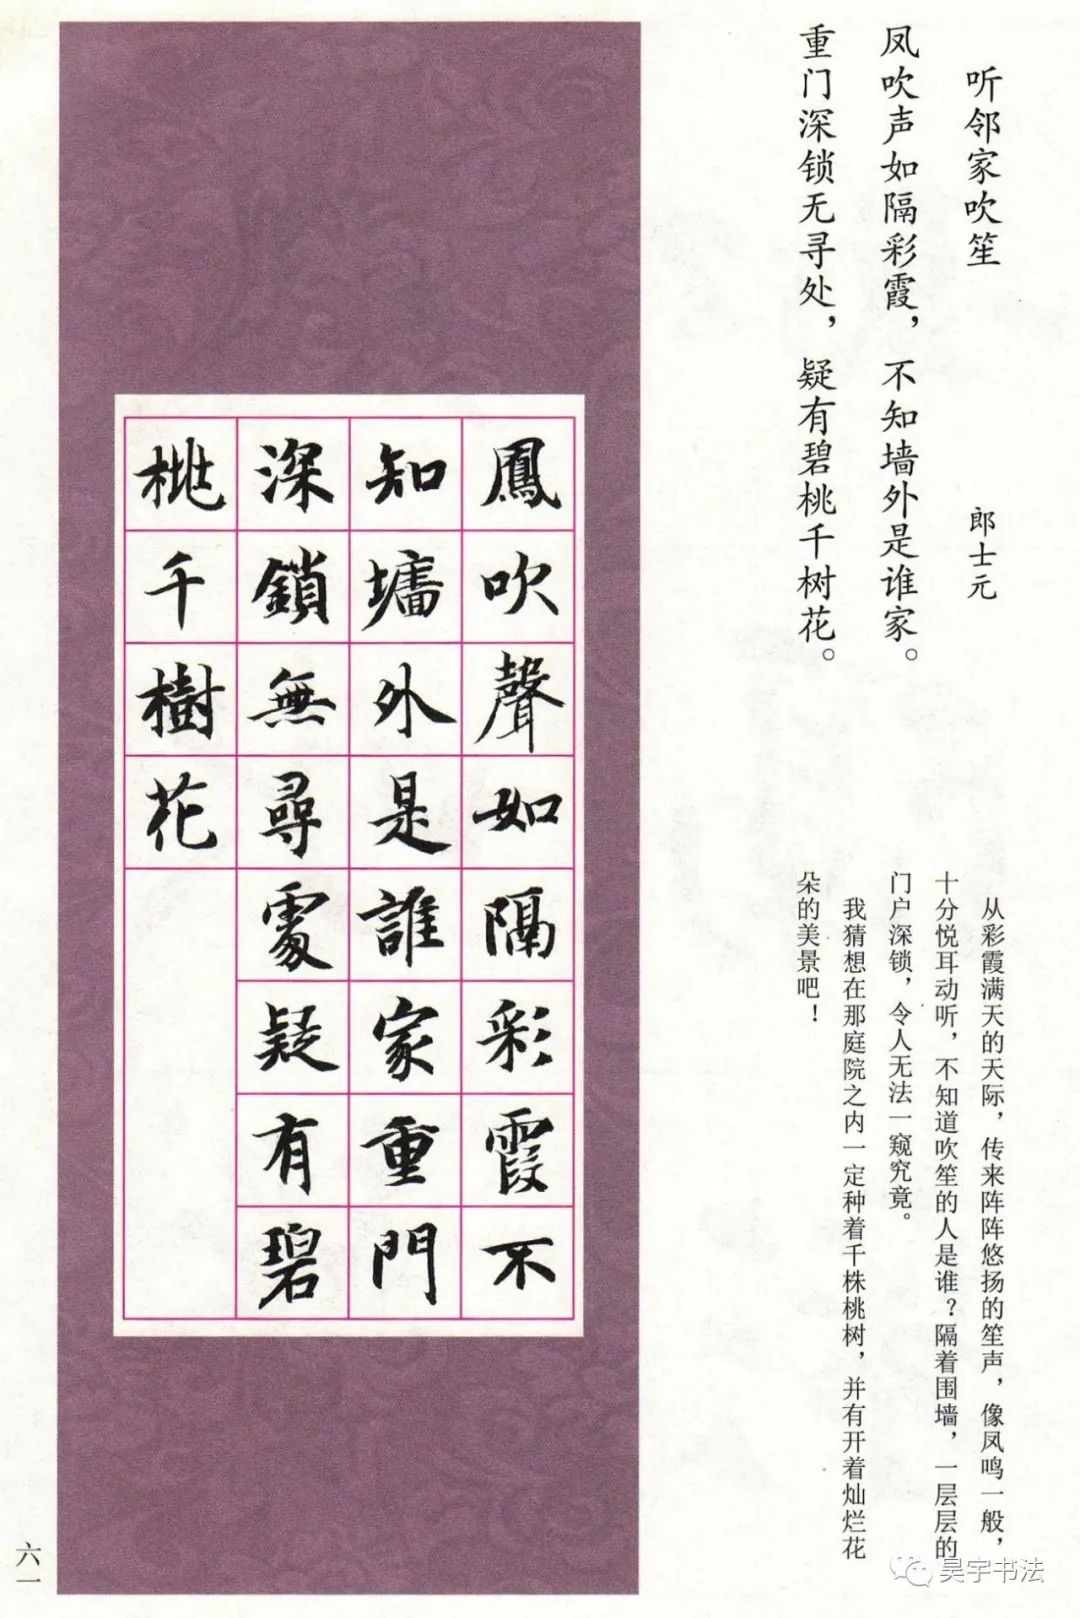 听邻家吹笙
郎士元
凤吹声如隔彩霞，不知墙外是谁家。
重门深锁无寻处，疑有碧桃千树花。
从彩霞满天的天际，传来阵阵悠扬的笙声，像凤鸣一般，
十分悦耳动听，不知道吹笙的人是谁？隔着围墙，一层层的
门户深锁，令人无法一窥究竟。
我猜想在那庭院之内一定种着千株桃树，并有开着灿烂花
朵的美景吧！
鳳吹聲如隔彩霞不
知墻外是誰家重門
深鎖無尋處疑有碧
桃千樹花
六一
昊宇书法